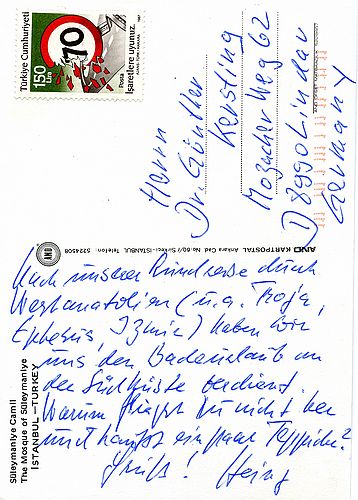 Türkiye Cumhuriyeti
150 Lira
70
Posta
İşaretlere uyunuz.
1987
Herrn
Dr. Günther
Kersting
Mozacher Weg 62
D 8990 Lindau
Germany
AND KARTPOSTAL Ankara Cad. No: 60// Sirkeci-ISTANBUL Telefon: 5224508
AND
Süleymaniye Camii
The Mosque of Süleymaniye
ISTANBUL – TURKEY
Nach unserer Rundreise durch
Westanatolien (u.a. Troja,
Ephesus, Izmir) haben wir
uns den Badeurlaub an
der Südküste verdient.
Warum fliegst Du nicht her
und kaufst ein paar Teppiche?
Gruß! Heinz